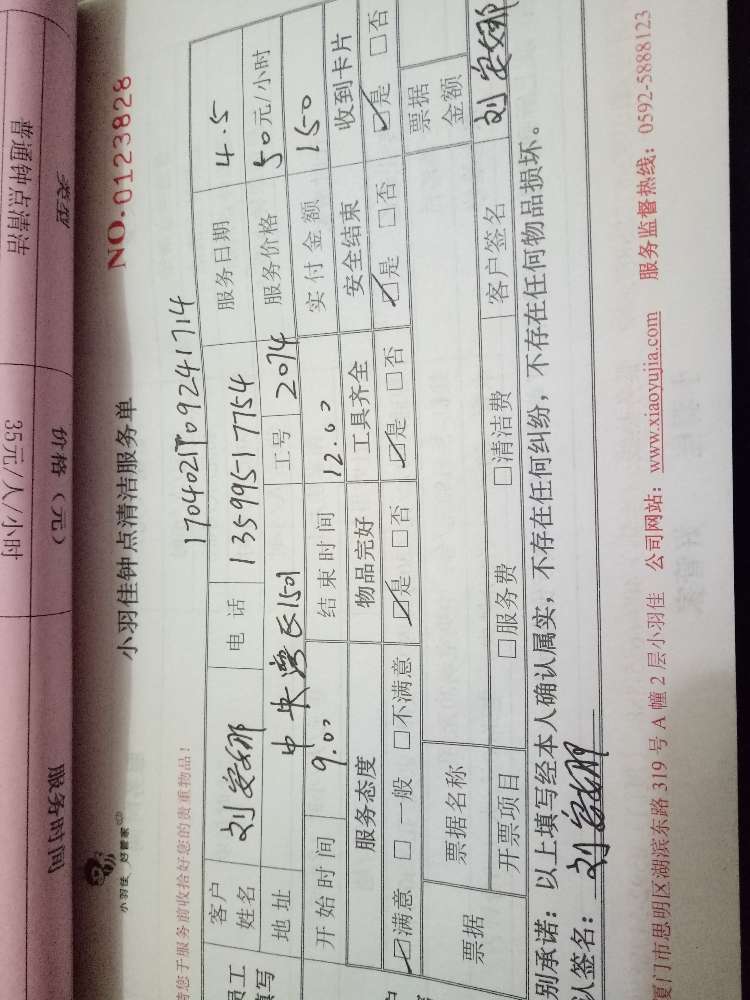 类型 价格（元） 服务时间
普通钟点清洁 35元/人/小时
小羽佳 好管家
小羽佳钟点清洁服务单 NO.0123828
请您于服务前收拾好您的贵重物品！
客户姓名 刘安娜 电话 13599517754 服务日期 4.5
地址 中央湾区1501 工号 2074 服务价格 50元/小时
开始时间 9:00 结束时间 12:00 实付金额 150
服务态度 物品完好 工具齐全 安全结束 收到卡片
☑满意 □一般 □不满意 ☑是 □否 ☑是 □否 ☑是 □否 ☑是 □否
票据 票据名称 票据金额
开票项目 □服务费 □清洁费 客户签名 刘安娜
别承诺：以上填写经本人确认属实，不存在任何纠纷，不存在任何物品损坏。
认签名：刘安娜
厦门市思明区湖滨东路319号A幢2层小羽佳 公司网站：www.xiaoyujia.com 服务监督热线：0592-5888123